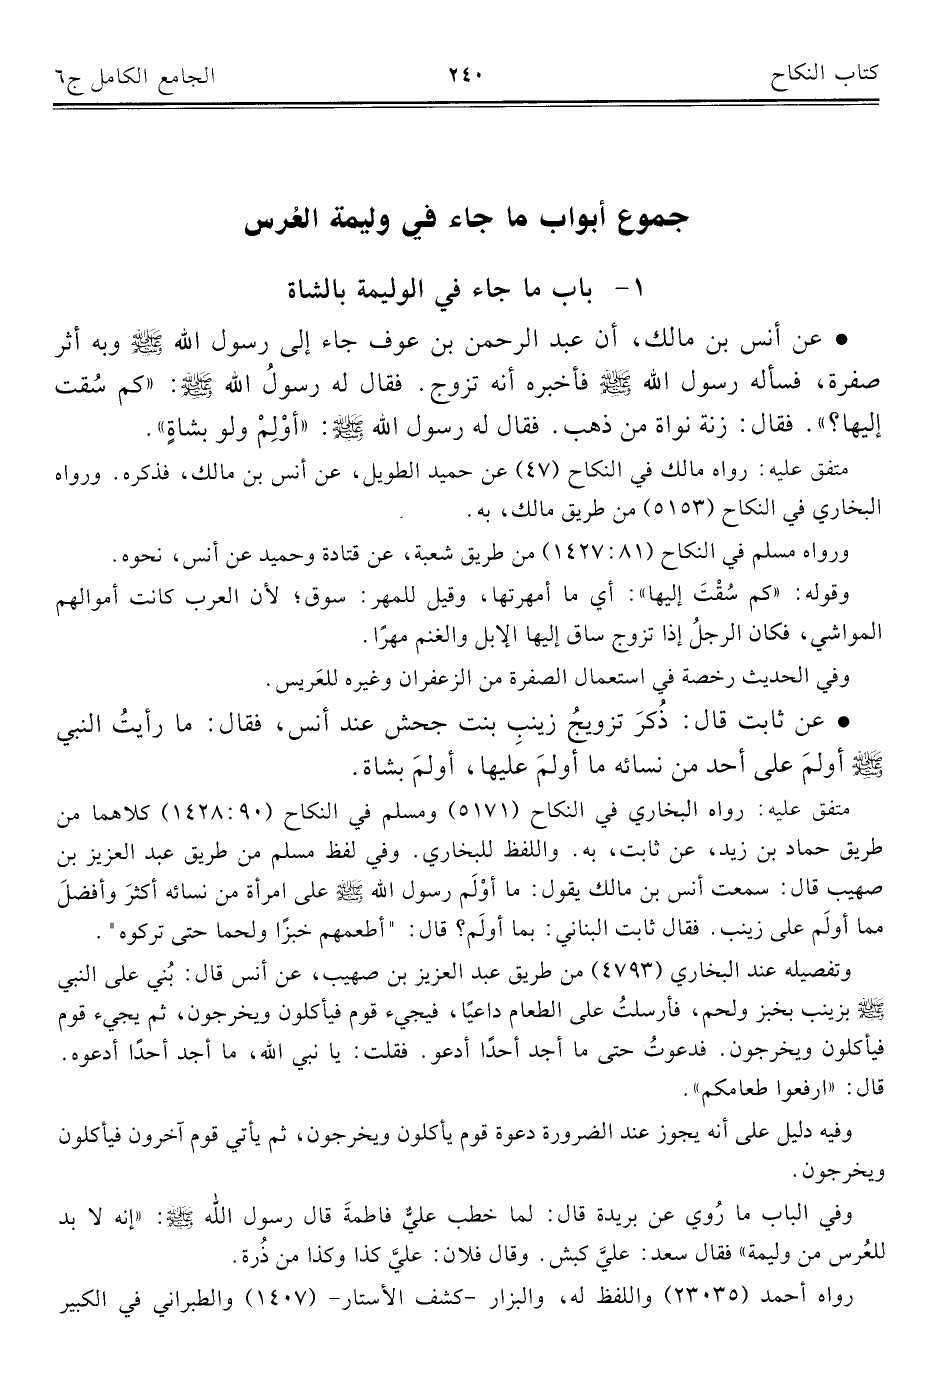 كتاب النكاح ٢٤٠ الجامع الكامل ج٦
جموع أبواب ما جاء في وليمة العُرس
١- باب ما جاء في الوليمة بالشاة
• عن أنس بن مالك، أن عبد الرحمن بن عوف جاء إلى رسول الله ﷺ وبه أثر
صفرة، فسأله رسول الله ﷺ فأخبره أنه تزوج. فقال له رسولُ الله ﷺ: «كم سُقت
إليها؟». فقال: زنة نواة من ذهب. فقال له رسول الله ﷺ: «أوْلِمْ ولو بشاةٍ».
متفق عليه: رواه مالك في النكاح (٤٧) عن حميد الطويل، عن أنس بن مالك، فذكره. ورواه
البخاري في النكاح (٥١٥٣) من طريق مالك، به.
ورواه مسلم في النكاح (١٤٢٧:٨١) من طريق شعبة، عن قتادة وحميد عن أنس، نحوه.
وقوله: «كم سُقْتَ إليها»: أي ما أمهرتها، وقيل للمهر: سوق؛ لأن العرب كانت أموالهم
المواشي، فكان الرجلُ إذا تزوج ساق إليها الإبل والغنم مهرًا.
وفي الحديث رخصة في استعمال الصفرة من الزعفران وغيره للعَريس.
• عن ثابت قال: ذُكرَ تزويجُ زينبِ بنت جحش عند أنس، فقال: ما رأيتُ النبي
ﷺ أولمَ على أحد من نسائه ما أولمَ عليها، أولمَ بشاة.
متفق عليه: رواه البخاري في النكاح (٥١٧١) ومسلم في النكاح (١٤٢٨:٩٠) كلاهما من
طريق حماد بن زيد، عن ثابت، به. واللفظ للبخاري. وفي لفظ مسلم من طريق عبد العزيز بن
صهيب قال: سمعت أنس بن مالك يقول: ما أوْلَم رسول الله ﷺ على امرأة من نسائه أكثرَ وأفضلَ
مما أولَم على زينب. فقال ثابت البناني: بما أولَم؟ قال: "أطعمهم خبزًا ولحما حتى تركوه".
وتفصيله عند البخاري (٤٧٩٣) من طريق عبد العزيز بن صهيب، عن أنس قال: بُني على النبي
ﷺ بزينب بخبز ولحم، فأرسلتُ على الطعام داعيًا، فيجيء قوم فيأكلون ويخرجون، ثم يجيء قوم
فيأكلون ويخرجون. فدعوتُ حتى ما أجد أحدًا أدعو. فقلت: يا نبي الله، ما أجد أحدًا أدعوه.
قال: «ارفعوا طعامكم».
وفيه دليل على أنه يجوز عند الضرورة دعوة قوم يأكلون ويخرجون، ثم يأتي قوم آخرون فيأكلون
ويخرجون.
وفي الباب ما رُوي عن بريدة قال: لما خطب عليٌّ فاطمةَ قال رسول اللَّه ﷺ: «إنه لا بد
للعُرس من وليمة» فقال سعد: عليَّ كبش. وقال فلان: عليَّ كذا وكذا من ذُرة.
رواه أحمد (٢٣٠٣٥) واللفظ له، والبزار -كشف الأستار- (١٤٠٧) والطبراني في الكبير